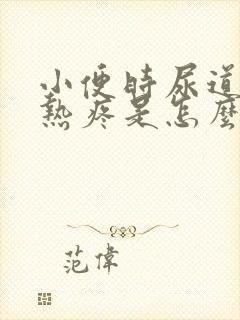 小便時尿道
熱疼是怎麼
范偉